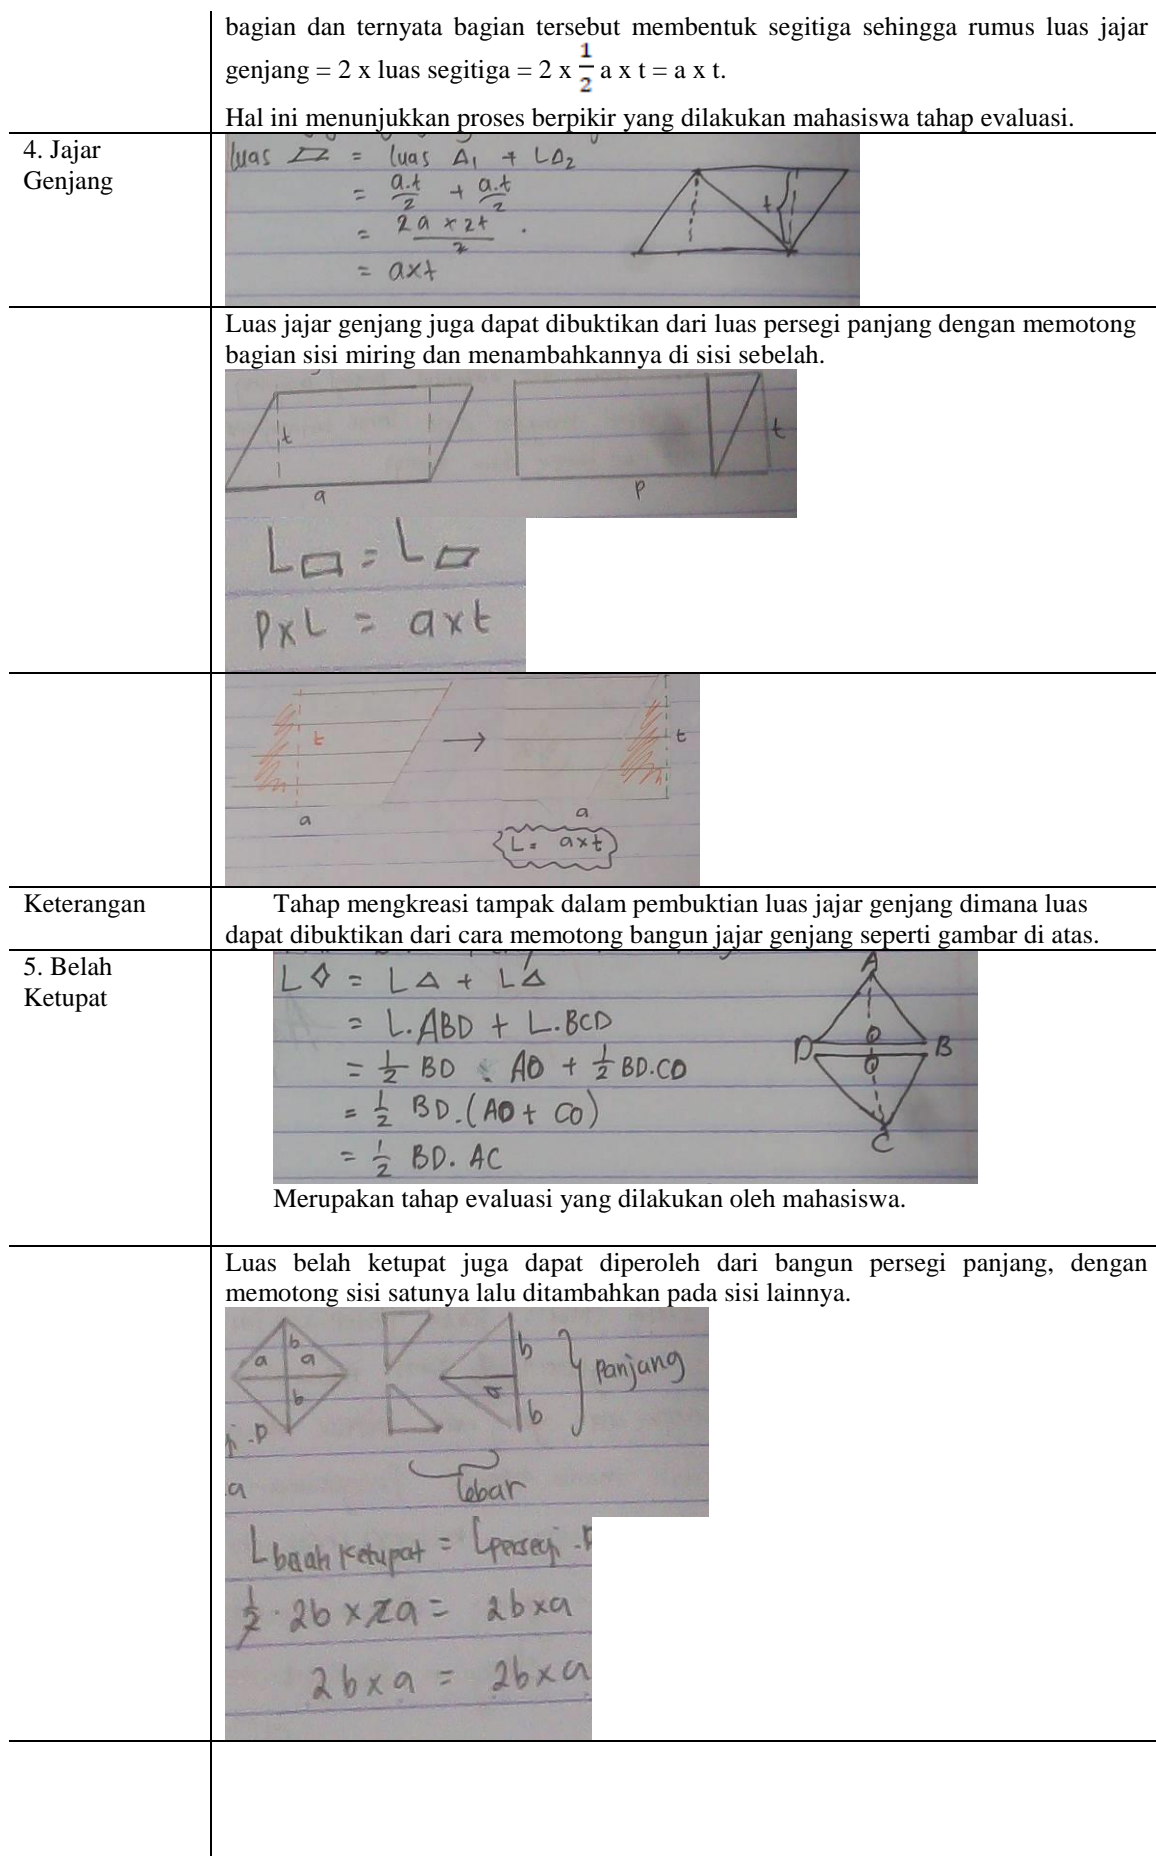 bagian dan ternyata bagian tersebut membentuk segitiga sehingga rumus luas jajar
genjang = 2 x luas segitiga = 2 x 1/2 a x t = a x t.
Hal ini menunjukkan proses berpikir yang dilakukan mahasiswa tahap evaluasi.
4. Jajar
Genjang
luas ▱ = luas Δ1 + LΔ2
= a.t/2 + a.t/2
= 2a x 2t/2 .
= axt
t
Luas jajar genjang juga dapat dibuktikan dari luas persegi panjang dengan memotong
bagian sisi miring dan menambahkannya di sisi sebelah.
t
a
p
t
L▭ = L▱
PxL = axt
t
a
t
a
L = axt
Keterangan
Tahap mengkreasi tampak dalam pembuktian luas jajar genjang dimana luas
dapat dibuktikan dari cara memotong bangun jajar genjang seperti gambar di atas.
5. Belah
Ketupat
L◊ = LΔ + LΔ
= L.ABD + L.BCD
= 1/2 BD . AO + 1/2 BD.CO
= 1/2 BD.(AO + CO)
= 1/2 BD. AC
A
D O B
O
C
Merupakan tahap evaluasi yang dilakukan oleh mahasiswa.
Luas belah ketupat juga dapat diperoleh dari bangun persegi panjang, dengan
memotong sisi satunya lalu ditambahkan pada sisi lainnya.
b
a a
b
b
a
b
Panjang
.p
.a
lebar
L belah ketupat = L persegi .P
1/2 . 2b x 2a = 2b x a
2b x a = 2b x a